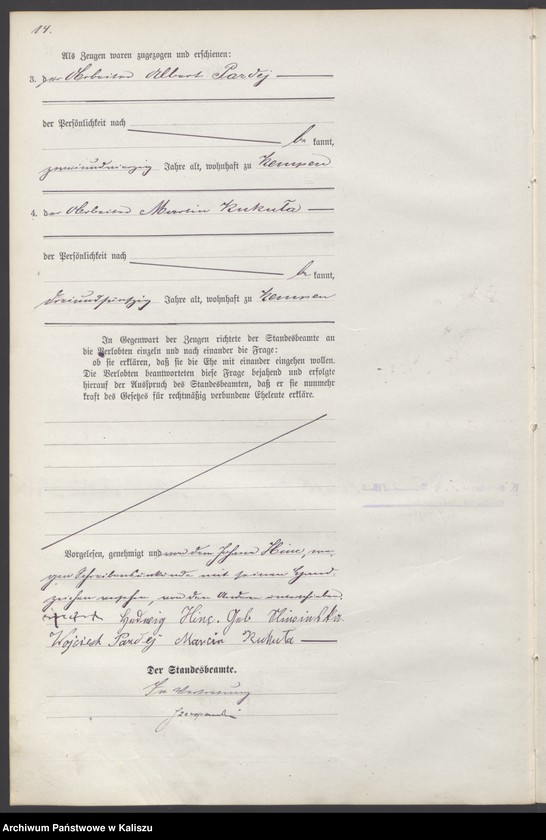 14.
Als Zeugen waren zugezogen und erschienen:
3. der Arbeiter Albert Pardej
der Persönlichkeit nach
be kannt,
zweiundvierzig Jahre alt, wohnhaft zu Kempen
4. der Arbeiter Martin Kukuła
der Persönlichkeit nach
be kannt,
dreiundfünfzig Jahre alt, wohnhaft zu Kempen
In Gegenwart der Zeugen richtete der Standesbeamte an
die Verlobten einzeln und nach einander die Frage:
ob sie erklären, daß sie die Ehe mit einander eingehen wollen.
Die Verlobten beantworteten diese Frage bejahend und erfolgte
hierauf der Ausspruch des Standesbeamten, daß er sie nunmehr
kraft des Gesetzes für rechtmäßig verbundene Eheleute erkläre.
Vorgelesen, genehmigt und von dem Johann Hinc, we-
gen Schreibensunkunde mit seinem Hand-
zeichen versehen, von den Andern unterschrieben.
+++ Hedwig Hinc. Geb
Wojciech Pardej Marcin Kukuła
Der Standesbeamte.
In Vertretung
Archiwum Państwowe w Kaliszu